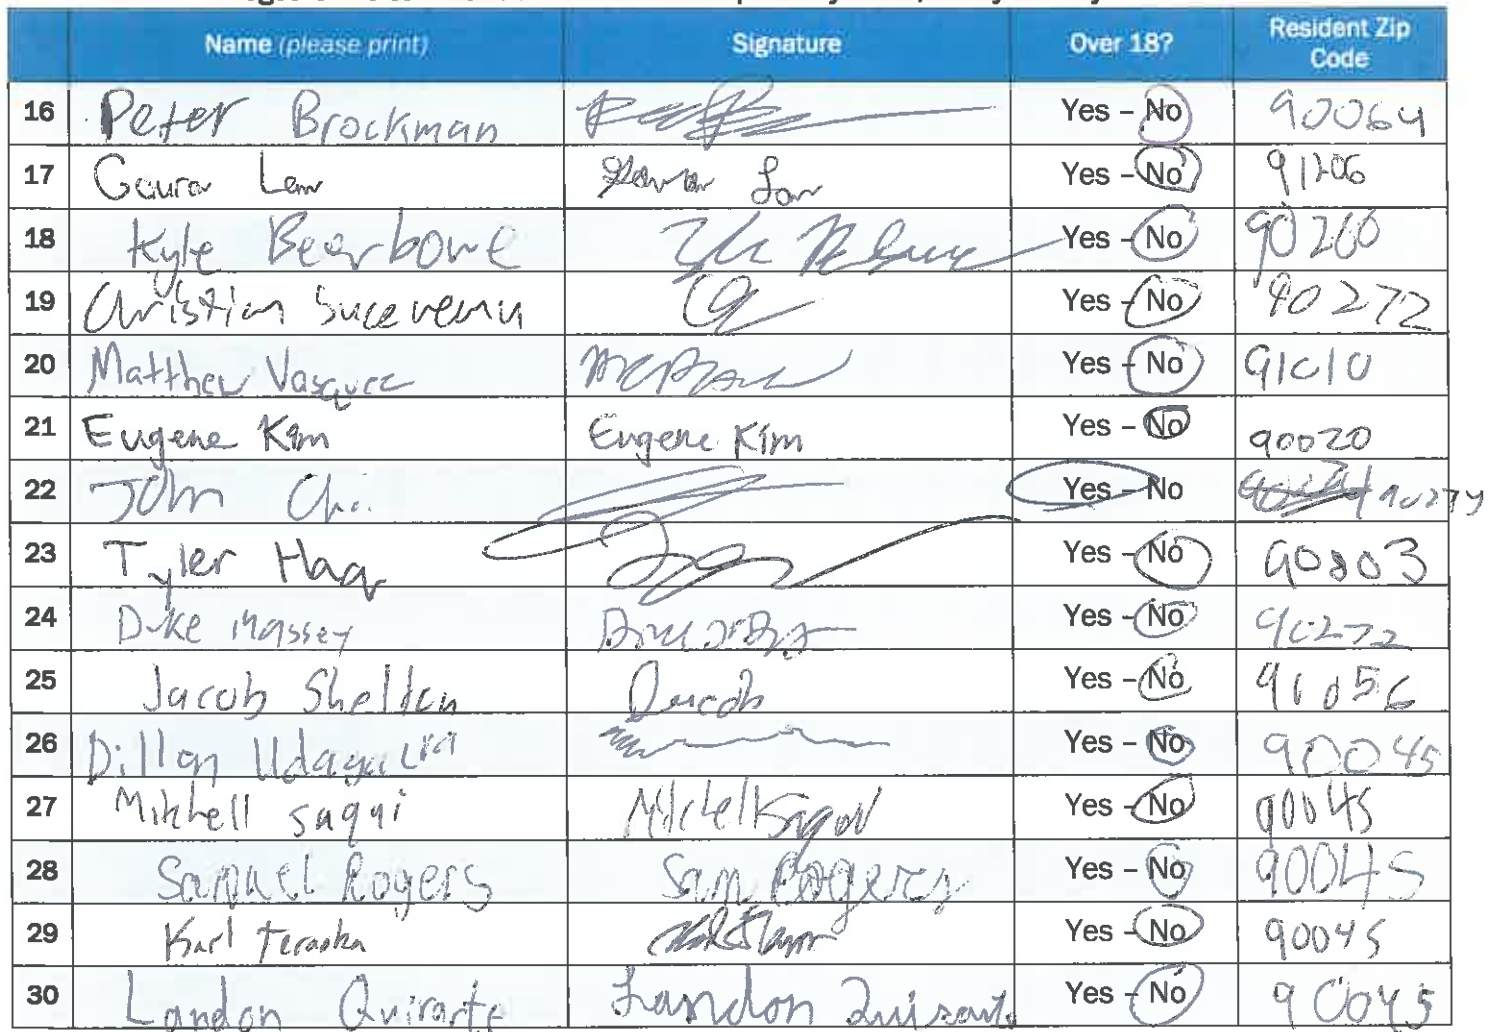 Name (please print) Signature Over 18? Resident Zip Code
16 Peter Brockman Yes – No 90064
17 Yes – No 91206
18 Kyle Beerbower Yes – No 90260
19 Christian Suceveanu Yes – No 90272
20 Matthew Vasquez Yes – No 91010
21 Eugene Kim Eugene Kim Yes – No 90020
22 John Yes – No 90274
23 Tyler Haq Yes – No 90803
24 Duke Massey Yes – No 90272
25 Jacob Shelton Jacob Yes – No
26 Dillon Yes – No 90045
27 Mitchell saqqi Yes – No 90045
28 Samuel Rogers Sam Rogers Yes – No 90045
29 Karl Teraoka Yes – No 90045
30 Landon Quirarte Landon Quirarte Yes – No 90045